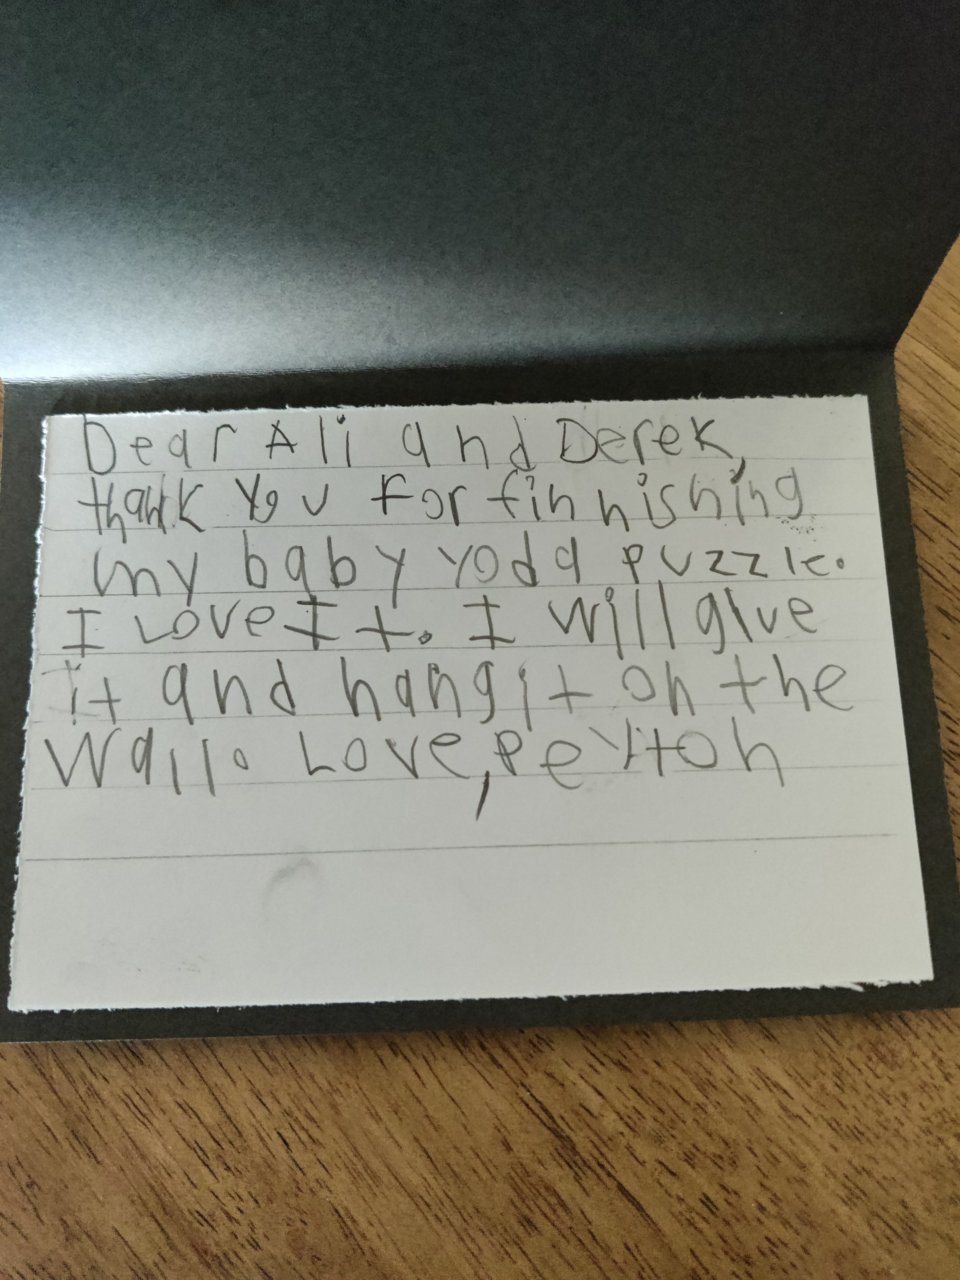 Dear Ali and Derek,
thank you for finnishing
my baby yoda puzzle.
I Love It. I will glue
it and hang it on the
Wall. Love, Peyton